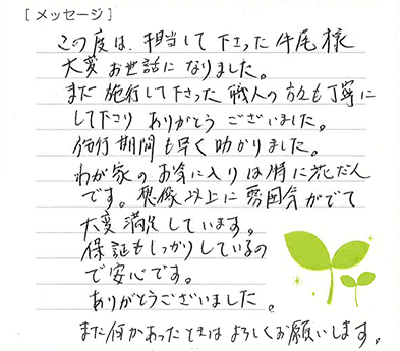 [メッセージ]
この度は、担当して下さった牛尾様
大変お世話になりました。
また施行して下さった職人の方々も丁寧に
して下さり ありがとう ございました。
施行期間も早く助かりました。
わが家のお気に入りは特に花だん
です。想像以上に雰囲気がでて
大変満足しています。
保証もしっかりしているの
で安心です。
ありがとうございました。
また何かあったときは よろしくお願いします。